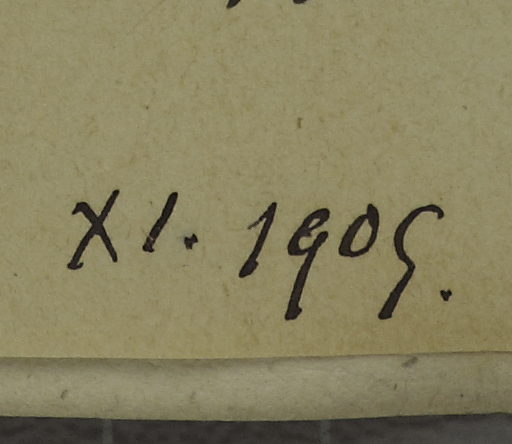 XI. 1905.